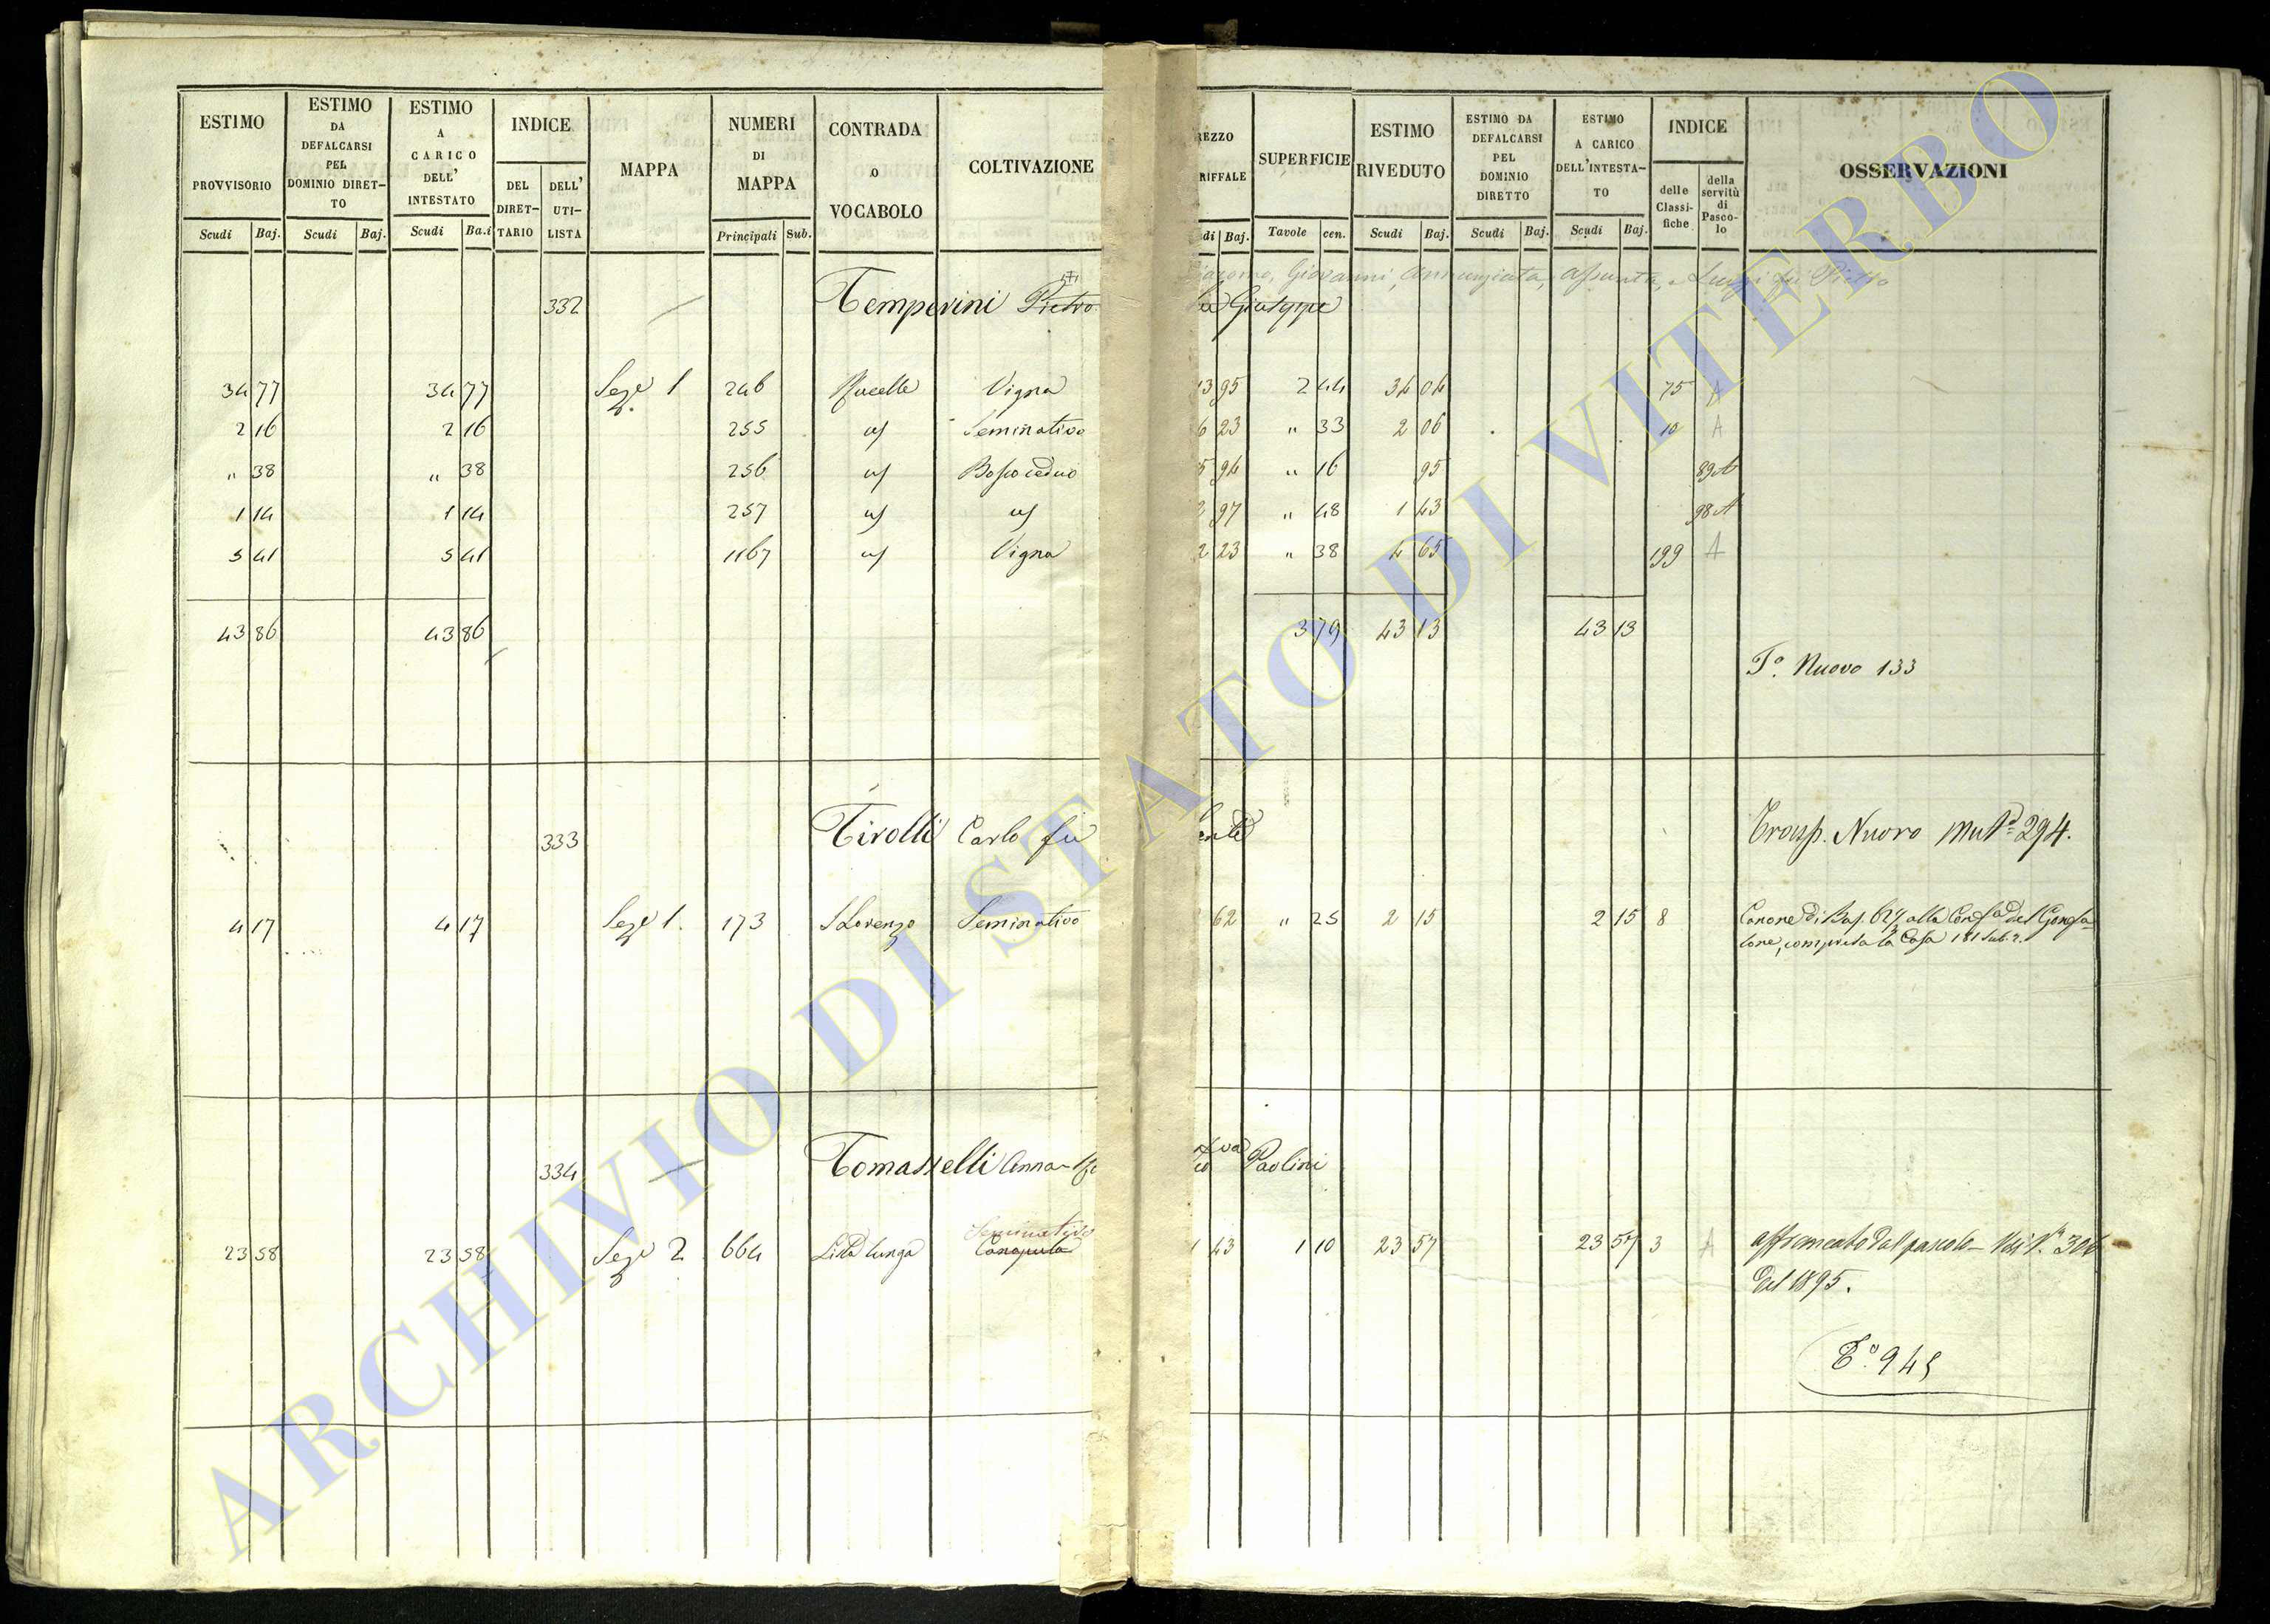 ESTIMO PROVVISORIO
ESTIMO DA DEFALCARSI PEL DOMINIO DIRET-TO
ESTIMO A CARICO DELL' INTESTATO
INDICE
DEL DIRET-TARIO
DELL' UTI-LISTA
MAPPA
NUMERI DI MAPPA
CONTRADA o VOCABOLO
COLTIVAZIONE
REZZO RIFFALE
SUPERFICIE
ESTIMO RIVEDUTO
ESTIMO DA DEFALCARSI PEL DOMINIO DIRETTO
ESTIMO A CARICO DELL'INTESTA-TO
INDICE
delle Classi-fiche
della servitù di Pasco-lo
OSSERVAZIONI
Scudi Baj. Scudi Baj. Scudi Ba.i Principali Sub. di Baj. Tavole cen. Scudi Baj. Scudi Baj. Scudi Baj.
Giacomo, Giovanni, Annunziata, Assunta, Luigi fu Pietro
332 Temperini Pietro Giuseppe
34 77 34 77 Sez.e 1 246 Vigna 13 95 2 44 34 04 75 A
2 16 2 16 255 Seminativo 6 23 " 33 2 06 10 A
" 38 " 38 256 Bosco ceduo 5 94 " 16 95 89 A
1 14 1 14 257 2 97 " 48 1 43 98 A
5 41 5 41 1167 Vigna 2 23 " 38 4 65 199 A
43 86 43 86 3 79 43 13 43 13
T.o Nuovo 133
333 Tirolli Carlo fu
Trasp. Nuovo 294.
4 17 4 17 Sez.e 1. 173 S Lorenzo Seminativo 62 " 25 2 15 2 15 8
Canone di Baj. alla del Gonfa-
lone, compresa la Casa 181 sub. 2.
334 Tomasselli Anna Paolini
Seminativo
23 58 23 58 Sez.e 2 664 Lista lunga Canapule 1 43 1 10 23 57 23 57 3 A
affrancato dal pascolo 306
del 1895.
T.o 945
ARCHIVIO DI STATO DI VITERBO